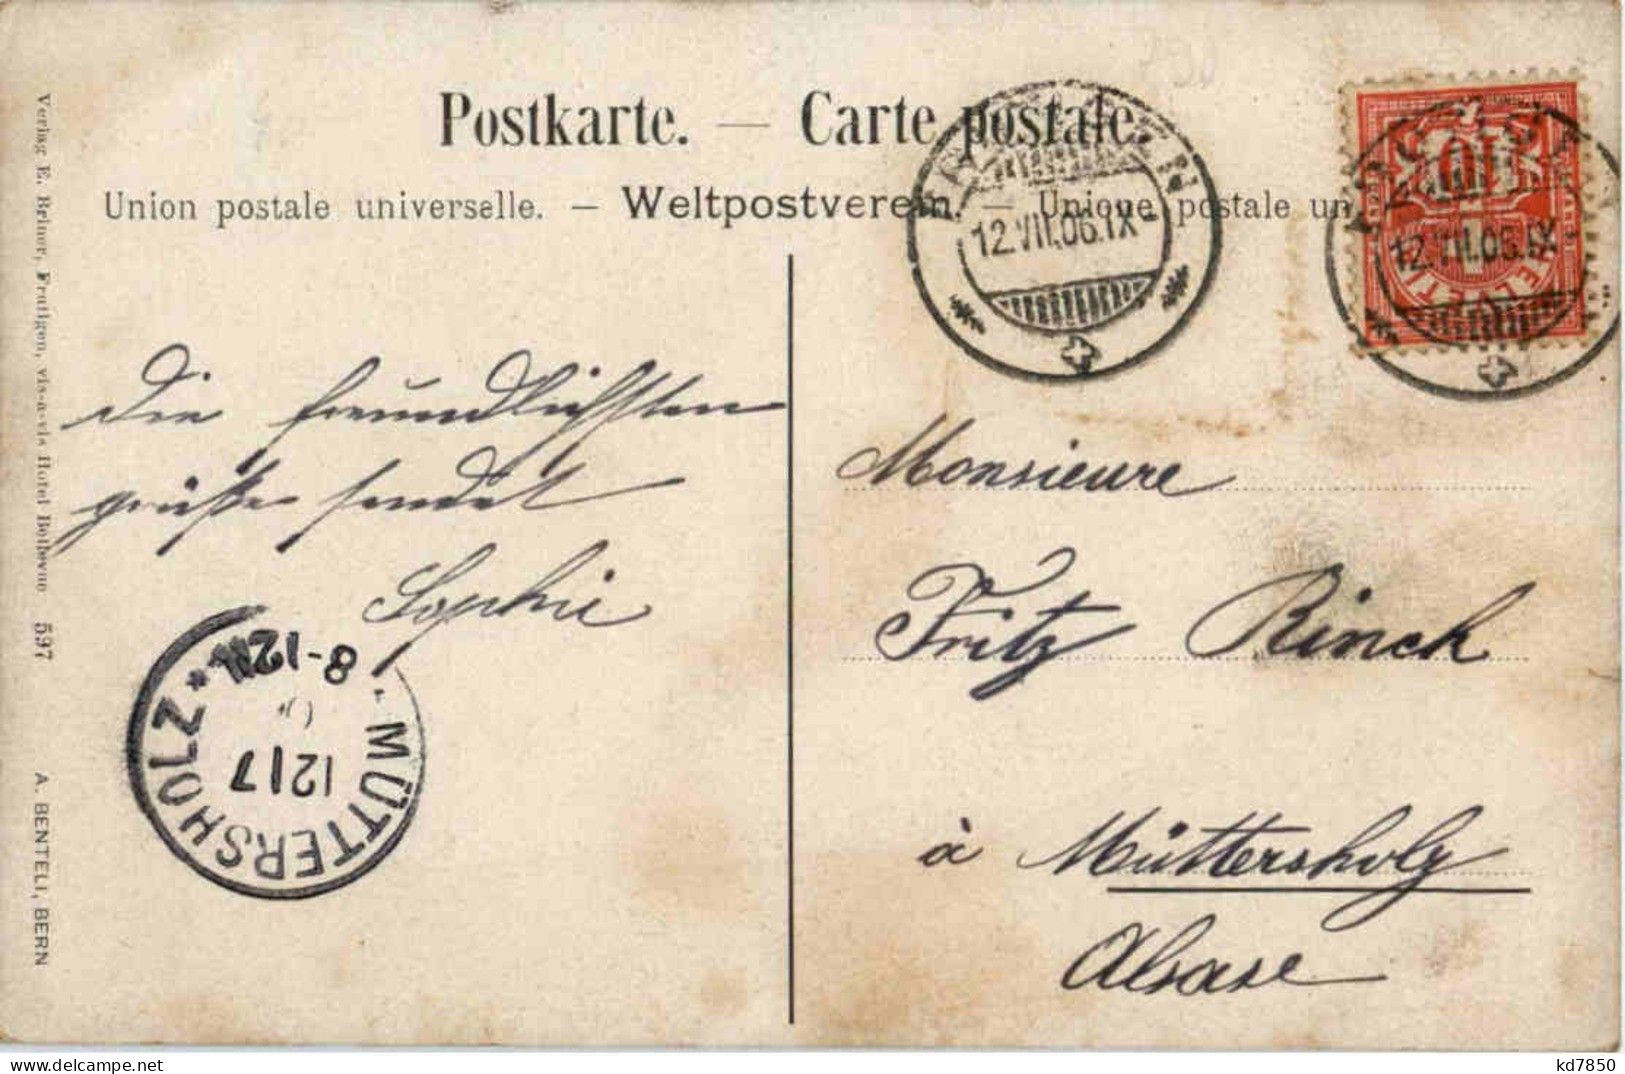 Postkarte. — Carte postale.
Union postale universelle. — Weltpostverein. — Unione postale un
12.VII.06.IX-
10
12.VII.06.IX-
HELVETIA
Die freundlichsten
grüße sendet
Sophie
MÜTTERSHOLZ
12 7
8-12N.
Monsieure
Fritz Rinck
à Müttersholz
Alsase
Verlag E. Brüner, Frutigen, vis-a-vis Hotel Bellevue 597
A. BENTELI, BERN
delcampe.net
kd7850